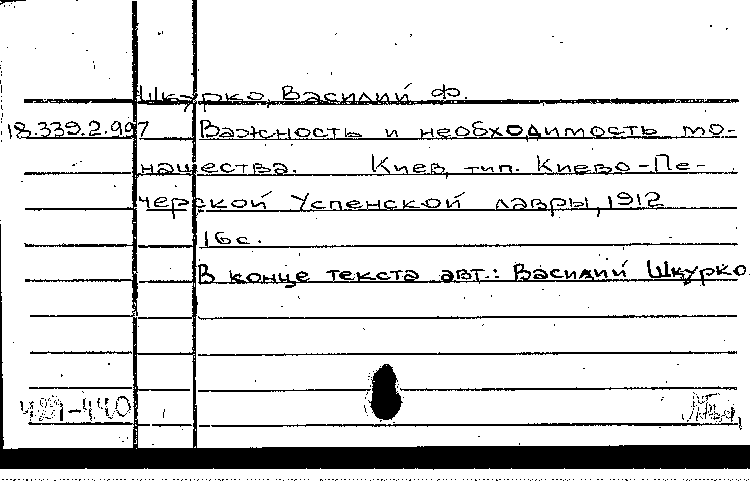 Шкурко, Василий Ф.
18.339.2.997 Важность и необходимость мо-
нашества. Киев, тип. Киево-Пе-
черской Успенской лавры, 1912
16 с.
В конце текста авт.: Василий Шкурко
429-440